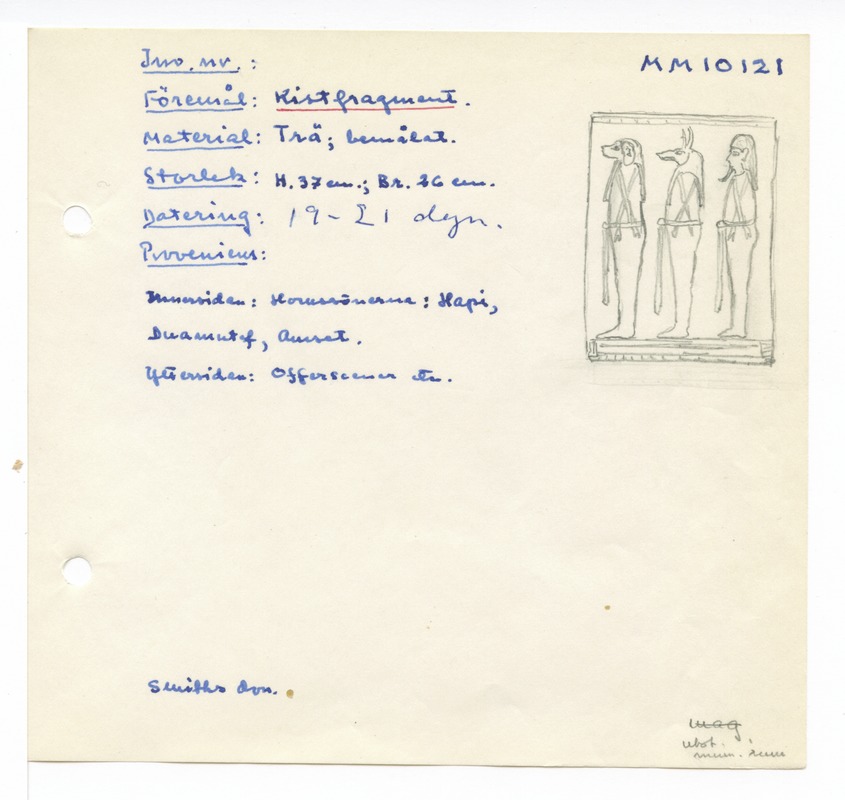 Inv. nr.: MM10121
Föremål: Kistfragment.
Material: Trä; bemålat.
Storlek: H. 37 cm.; Br. 26 cm.
Datering: 19-21 dyn.
Proveniens:
Innersidan: Horussönerna: Hapi,
Duamutef, Amset.
Yttersidan: Offerscener etc.
Smiths don.
mag
utst.
mum. rum